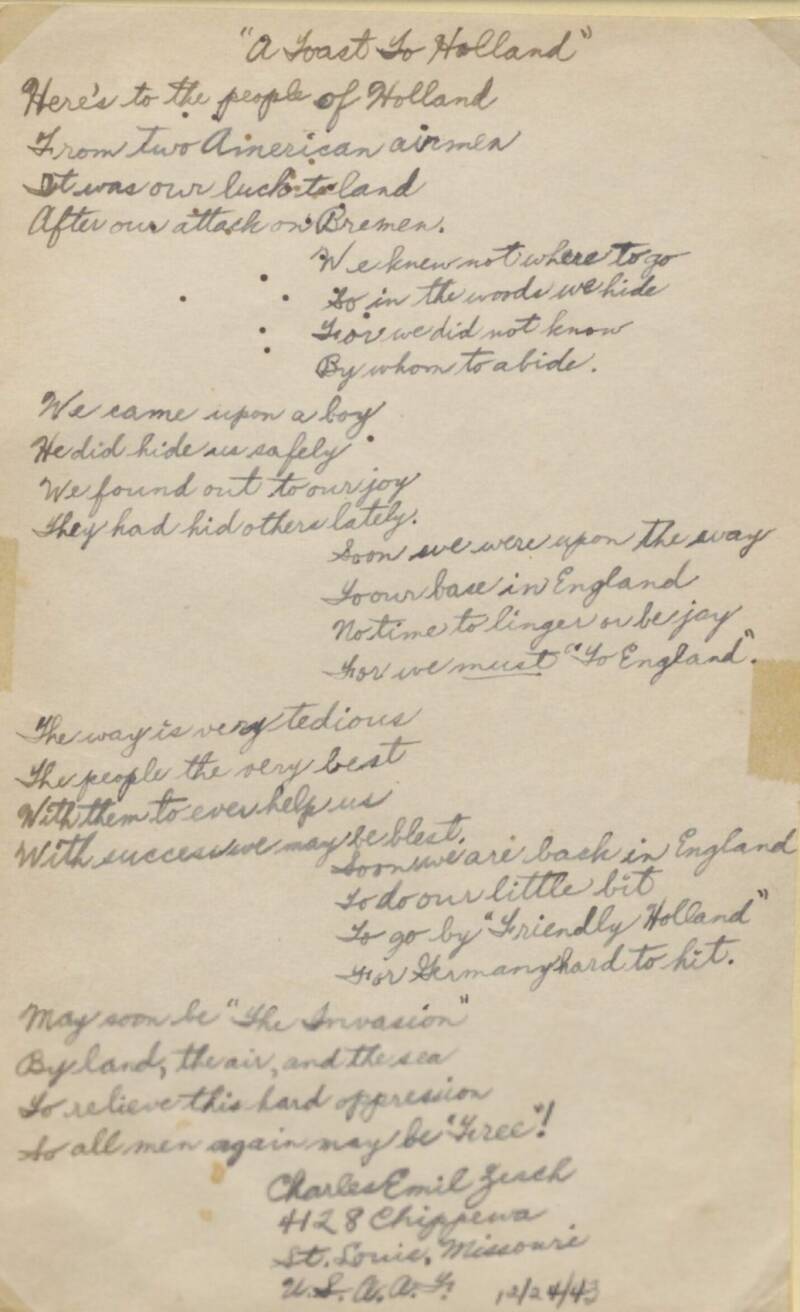 "A Toast To Holland"
Here's to the people of Holland
From two American airmen
It was our luck to land
After our attack on Bremen.
We knew not where to go
So in the woods we hide
For we did not know
By whom to abide.
We came upon a boy
He did hide us safely
We found out to our joy
They had hid others lately.
Soon we were upon the way
To our base in England
No time to linger or be jay
For we must "To England".
The way is very tedious
The people the very best
With them to ever help us
With success we may be blest.
Soon we are back in England
To do our little bit
To go by "Friendly Holland"
For Germany hard to hit.
May soon be "The Invasion"
By land, the air, and the sea
To relieve this hard oppression
So all men again may be "Free"!
Charles Emil Zesch
4128 Chippewa
St. Louis, Missouri
U.S.A.A.F. 12/24/43